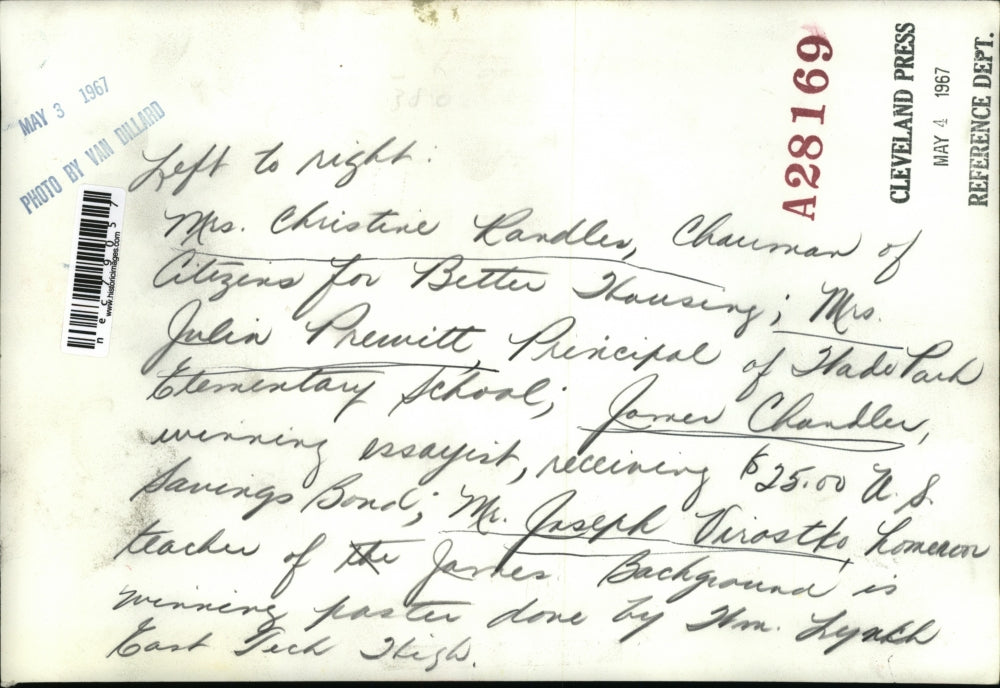 MAY 3 1967
PHOTO BY VAN DILLARD
A28169
CLEVELAND PRESS
MAY 4 1967
REFERENCE DEPT.
www.historicimages.com
Left to right:
Mrs. Christine Randles, Chairman of
Citizens for Better Housing; Mrs.
Julia Prewitt, Principal of Wade Park
Elementary School; James Chandler,
winning essayist, receiving $25.00 U.S.
Savings Bond; Mr. Joseph Virostko homeroom
teacher of the James. Background is
winning poster done by Wm. Lynch
East Tech High.